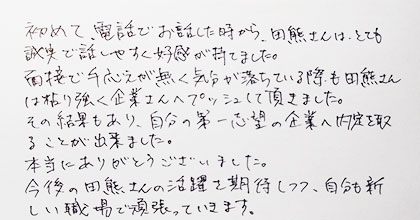 初めて、電話でお話した時から、田熊さんは、とても
誠実で話しやすく好感が持てました。
面接で手応えが無く気分が落ちている際も田熊さん
は粘り強く企業さんへプッシュして頂きました。
その結果もあり、自分の第一志望の企業へ内定を取
ることが出来ました。
本当にありがとうございました。
今後の田熊さんの活躍を期待しつつ、自分も新
しい職場で頑張っていきます。